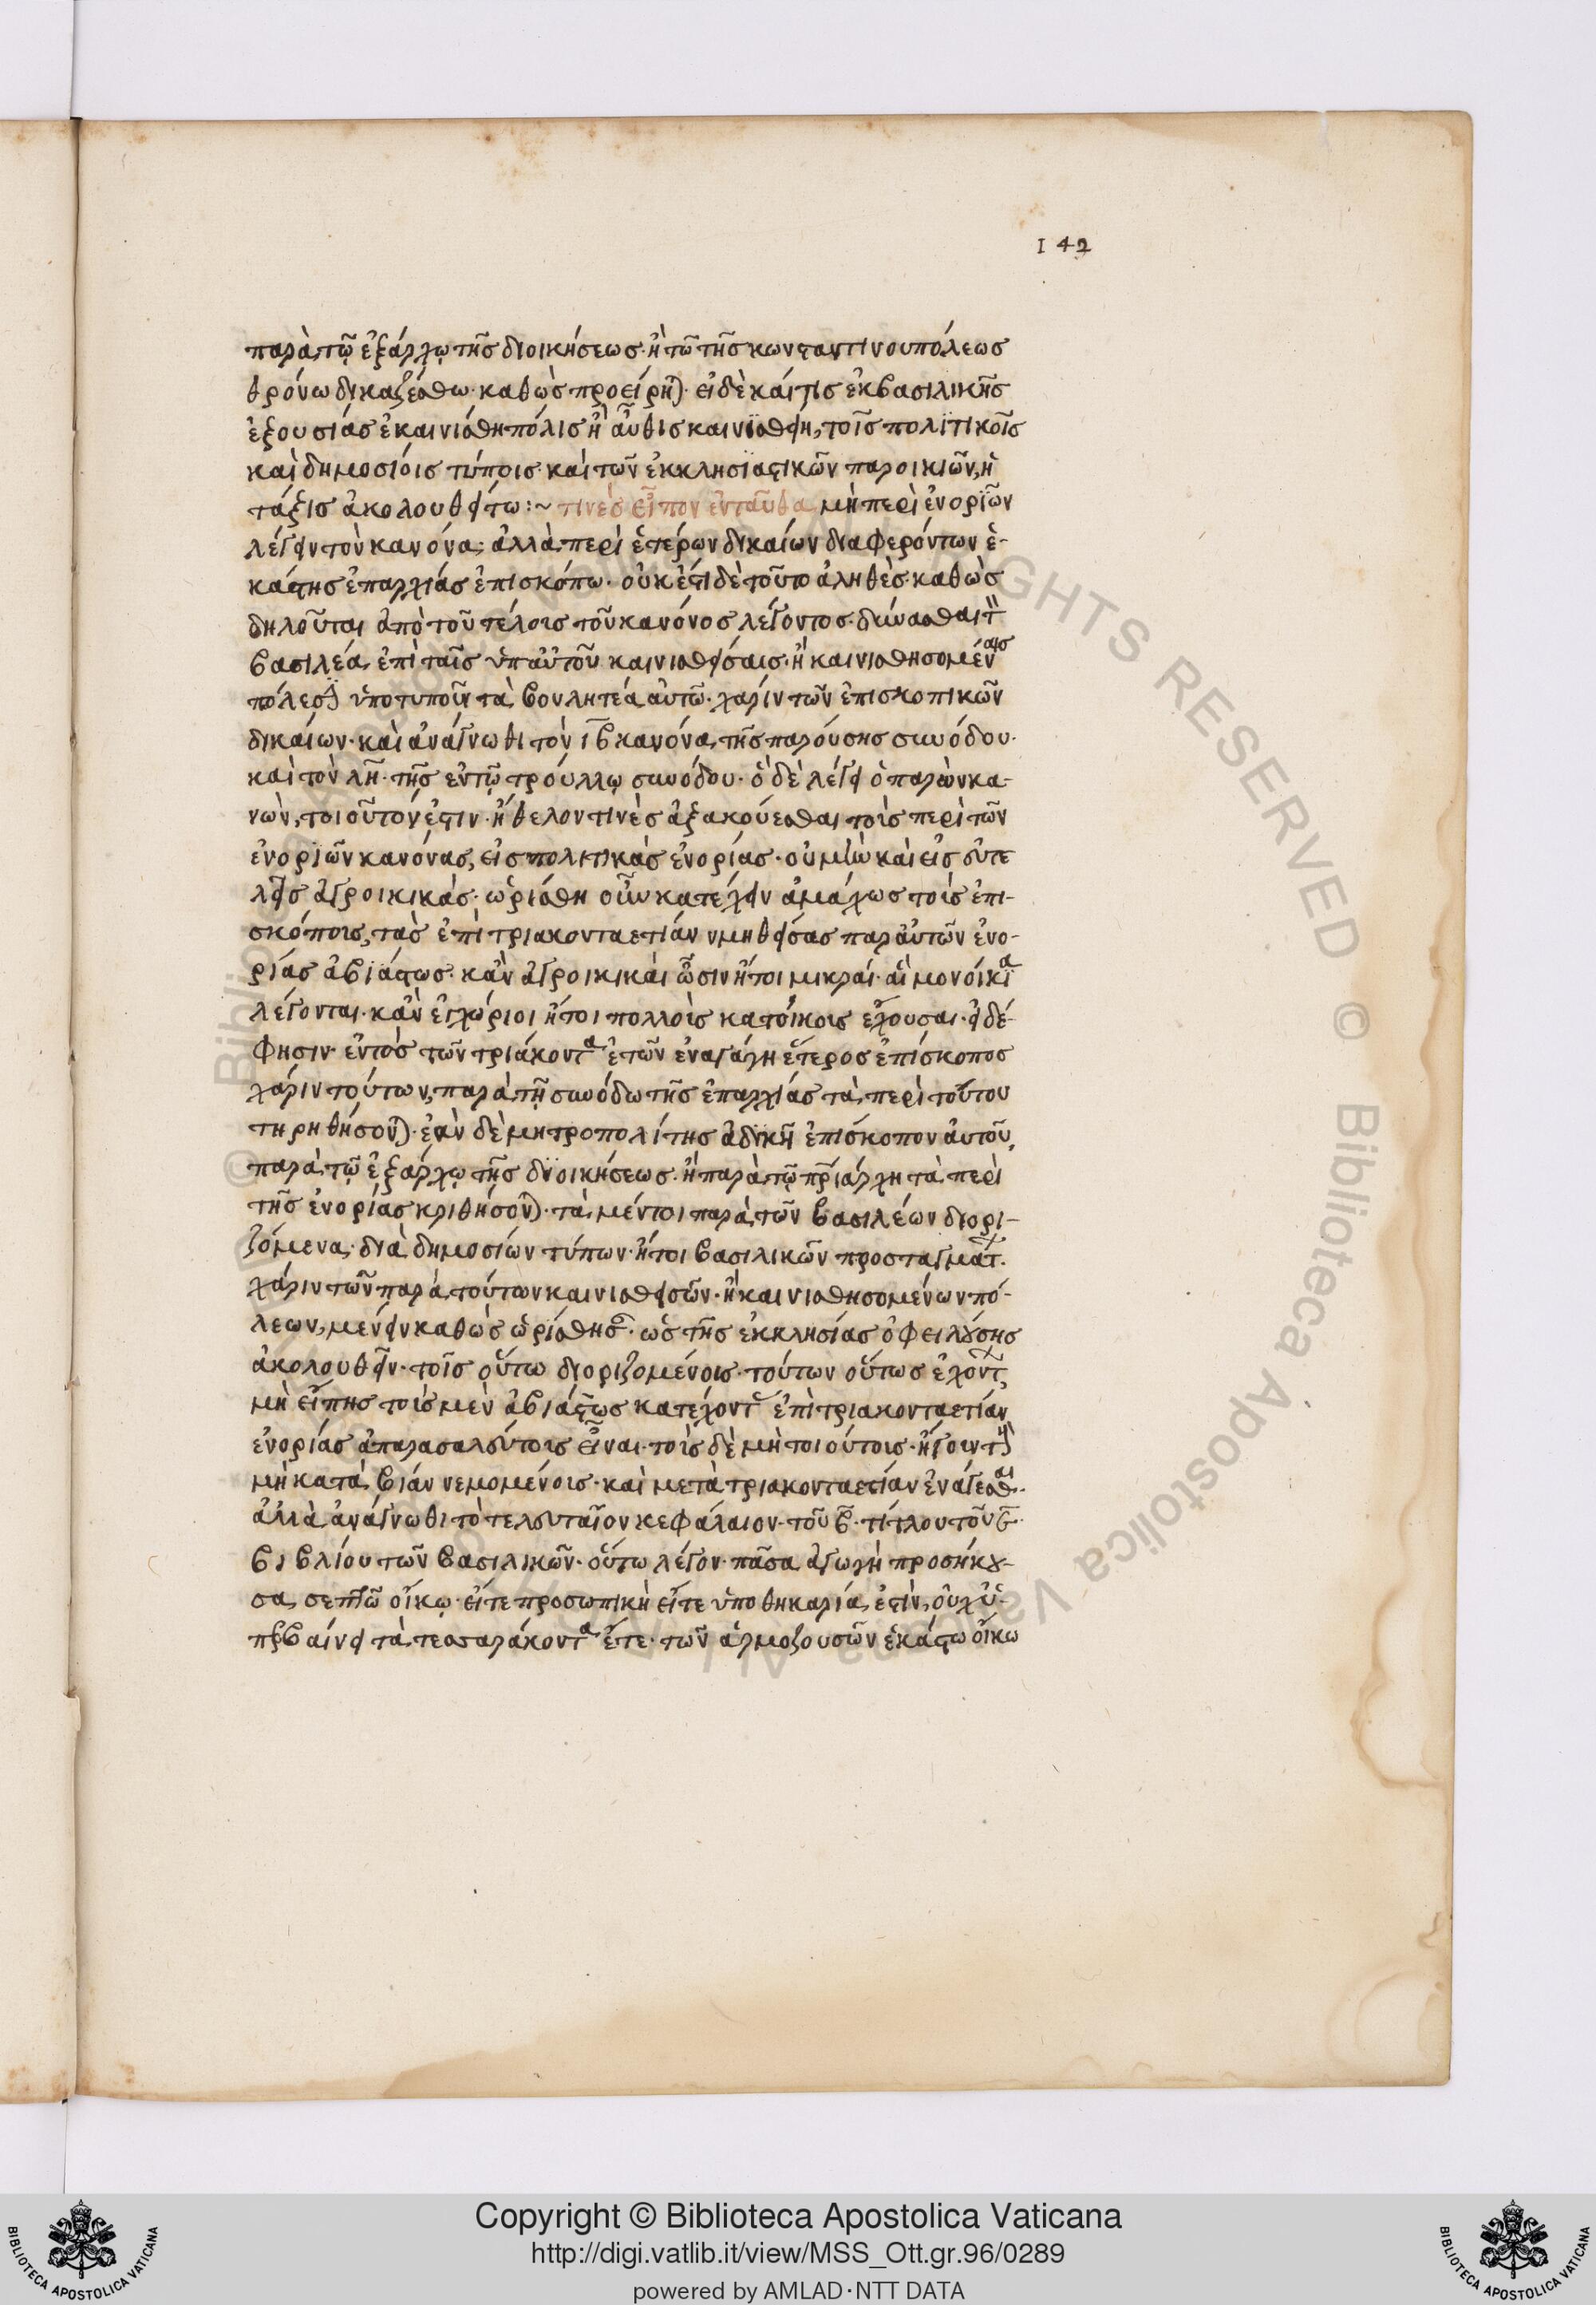 142
παρὰ τῷ ἐξάρχῳ τῆς διοικήσεως· ἢ τῶ τῆς κωνσταντινουπόλεως
θρόνω δικαζέσθω· καθὼς προείρητ(αι)· εἰ δὲ καί τις ἐκ βασιλικῆς
ἐξουσίας ἐκαινίσθη πόλις ἢ αὖθις καινισθείη, τοῖς πολιτικοῖς
καὶ δημοσίοις τύποις καὶ τῶν ἐκκλησϊαστικῶν παροικιῶν, ἡ
τάξις ἀκολουθείτω :~ τινὲς εἶπον ἐνταῦθα μὴ περὶ ἐνορϊῶν
λέγειν τὸν κανόνα· ἀλλὰ περὶ ἑτέρων δικαίων διαφερόντων ἑ-
κάστης ἐπαρχίας ἐπισκόπω· οὐκ ἔστι δὲ τοῦτο ἀληθὲς καθὼς
δηλοῦται ἀπὸ τοῦ τέλους τοῦ κανόνος λέγοντος· δύνασθαι τ(ὸν)
βασιλέα ἐπὶ ταῖς ὑπ αὐτοῦ καινισθείσαις· ἢ καινισθησομέναις
πόλεσϊ(ν) ὑποτυποῦν τὰ βουλητέα αὐτῶ· χάριν τῶν ἐπισκοπικῶν
δικαίων· καὶ ἀνάγνωθι τὸν ιβ κανόνα τῆς παρούσης συνόδου·
καὶ τὸν λη· τῆς ἐν τῷ τρούλλῳ συνόδου· ὃ δὲ λέγει ὁ παρὼν κα-
νὼν, τοιοῦτόν ἐστιν· ἤθελον τινὲς ἐξακούεσθαι τοὺς περὶ τῶν
ἐνορϊῶν κανόνας, εἰς πολιτικὰς ἐνορίας· οὐ μὴν καὶ εἰς εὐτε
λεῖς ἀγροικικάς· ὡρίσθη οὖν κατέχειν ἀμάχως τοὺς ἐπι-
σκόπους, τὰς ἐπὶ τριακονταετίαν νμηθείσας παρ αὐτῶν ἐνο-
ρίας ἀβϊάστως· κἂν ἀγροικικαὶ ὦσιν ἤτοι μικραί· αἳ μονοίκϊα
λέγονται· κἂν ἐγχώριοι ἤτοι πολλοὺς κατοίκους ἔχουσαι· εἰ δέ
φησιν· ἐντὸς τῶν τριάκοντα ἐτῶν ἐναγάγη ἕτερος ἐπίσκοπος
χάριν τούτων, παρὰ τῇ συνόδω τῆς ἐπαρχίας τὰ περὶ τούτου
τηρηθήσοντ(αι)· ἐὰν δὲ μητροπολίτης ἀδικῆ ἐπίσκοπον αὐτοῦ,
παρὰ τῷ ἐξάρχῳ τῆς διοικήσεως· ἢ παρὰ τῷ πρϊάρχη τὰ περὶ
τῆς ἐνορίας κριθήσοντ(αι)· τὰ μέντοι παρὰ τῶν βασιλέων διορι-
ζόμενα διὰ δημοσίων τύπων· ἤτοι βασιλικῶν προσταγμάτ(ων)·
χάριν τῶν παρὰ τούτων καινισθεισῶν· ἢ καινισθησομένων πό-
λεων, μένειν καθὼς ὡρίσθησ(αν)· ὡς τῆς ἐκκλησίας ὀφειλούσης
ἀκολουθεῖν· τοῖς οὕτω διοριζομένοις· τούτων οὕτως ἐχόντ(ων)
μὴ εἴπης τοὺς μὲν ἀβιάστως κατέχοντ(ας) ἐπὶ τριακονταετίαν
ἐνορίας ἀπαρασαλεύτους εἶναι· τοὺς δὲ μὴ τοιούτους· ἤγουν τ(ὴν)
μὴ κατὰ βιάν νεμομένους· καὶ μετὰ τριακονταετίαν ἐνάγεσθαι·
ἀλλὰ ἀνάγνωθι τὸ τελευταῖον κεφάλαιον· τοῦ β· τίτλου τοῦ ε
βιβλίου τῶν βασιλικῶν· οὕτω λέγον· πᾶσα ἀγωγὴ προσήκου-
σα σεπτῶ οἴκῳ· εἴτε προσωπικὴ εἴτε ὑποθηκαρία ἐστὶν, οὐχ ὑ-
περβαίνει τὰ τεσσαράκοντα ἔτε· τῶν ἁρμοζουσῶν ἑκάστω οἴκω
© Biblioteca Apostolica Vaticana ALL RIGHTS RESERVED
© Biblioteca Apostolica Vaticana ALL
Copyright © Biblioteca Apostolica Vaticana
http://digi.vatlib.it/view/MSS_Ott.gr.96/0289
powered by AMLAD·NTT DATA
BIBLIOTECA APOSTOLICA VATICANA
BIBLIOTECA APOSTOLICA VATICANA